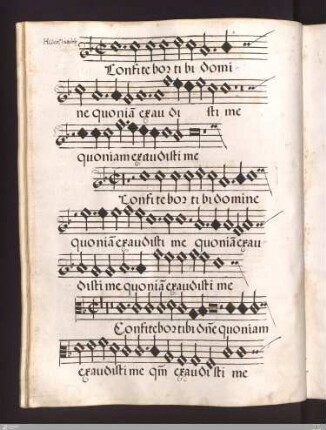 Confitebor tibi domi-
ne quoniā exau di sti me
quoniam exaudisti me
Confitebor tibi domine
quoniā exaudisti me quoniā exau-
disti me quoniā exaudisti me
Confitebor tibi dñe quoniam
exaudisti me qm̄ exau di sti me